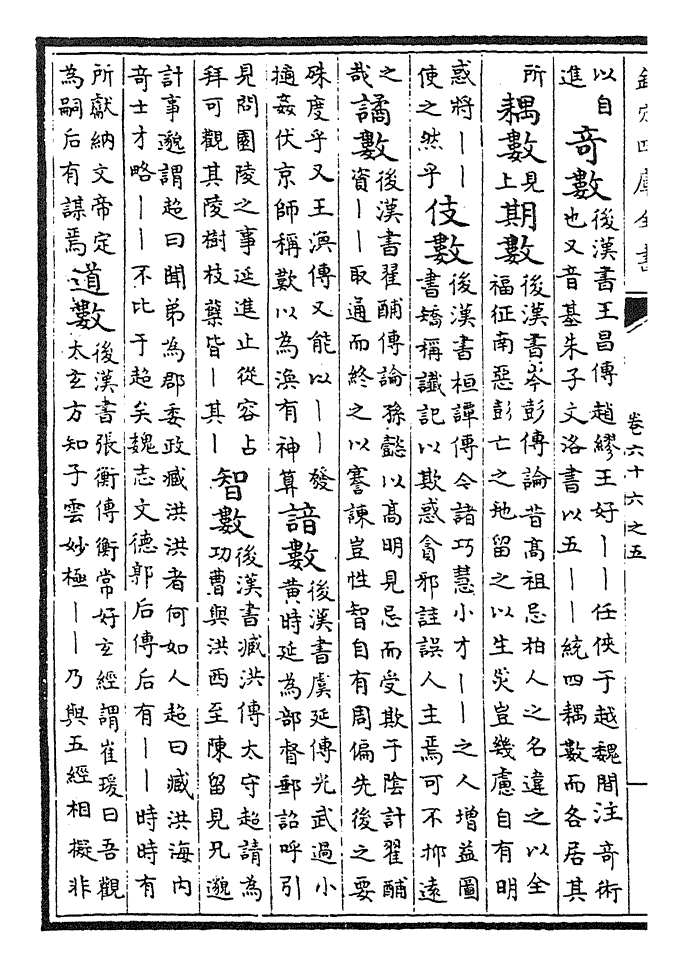 欽定四庫全書 卷六十六之五
以自進 奇數 後漢書王昌傳趙繆王好——任俠于越魏間注奇術也又音基朱子文洛書以五——統四耦數而各居其
所 耦數 見上 期數 後漢書岑彭傳論昔髙祖忌柏人之名違之以全福征南惡彭亡之地留之以生災豈幾慮自有明
惑將——使之然乎 伎數 後漢書桓譚傳今諸巧慧小才——之人增益圖書矯稱讖記以欺惑貪邪詿誤人主焉可不抑遠
之哉 譎數 後漢書翟酺傳論孫懿以髙明見忌而受欺于陰計翟酺資——取通而終之以謇諫豈性智自有周偏先後之要
殊度乎又王渙傳又能以——發擿姦伏京師稱歎以為渙有神算 諳數 後漢書虞延傳光武過小黃時延為部督郵詔呼引
見問園陵之事延進止從容占拜可觀其陵樹枝蘖皆—其— 智數 後漢書臧洪傳太守超請為功曹與洪西至陳留見兄邈
計事邈謂超曰聞弟為郡委政臧洪洪者何如人超曰臧洪海内奇士才略——不比于超矣魏志文德郭后傳后有——時時有
所獻納文帝定為嗣后有謀焉 道數 後漢書張衡傳衡常好玄經謂崔瑗曰吾觀太玄方知子雲妙極——乃與五經相擬非